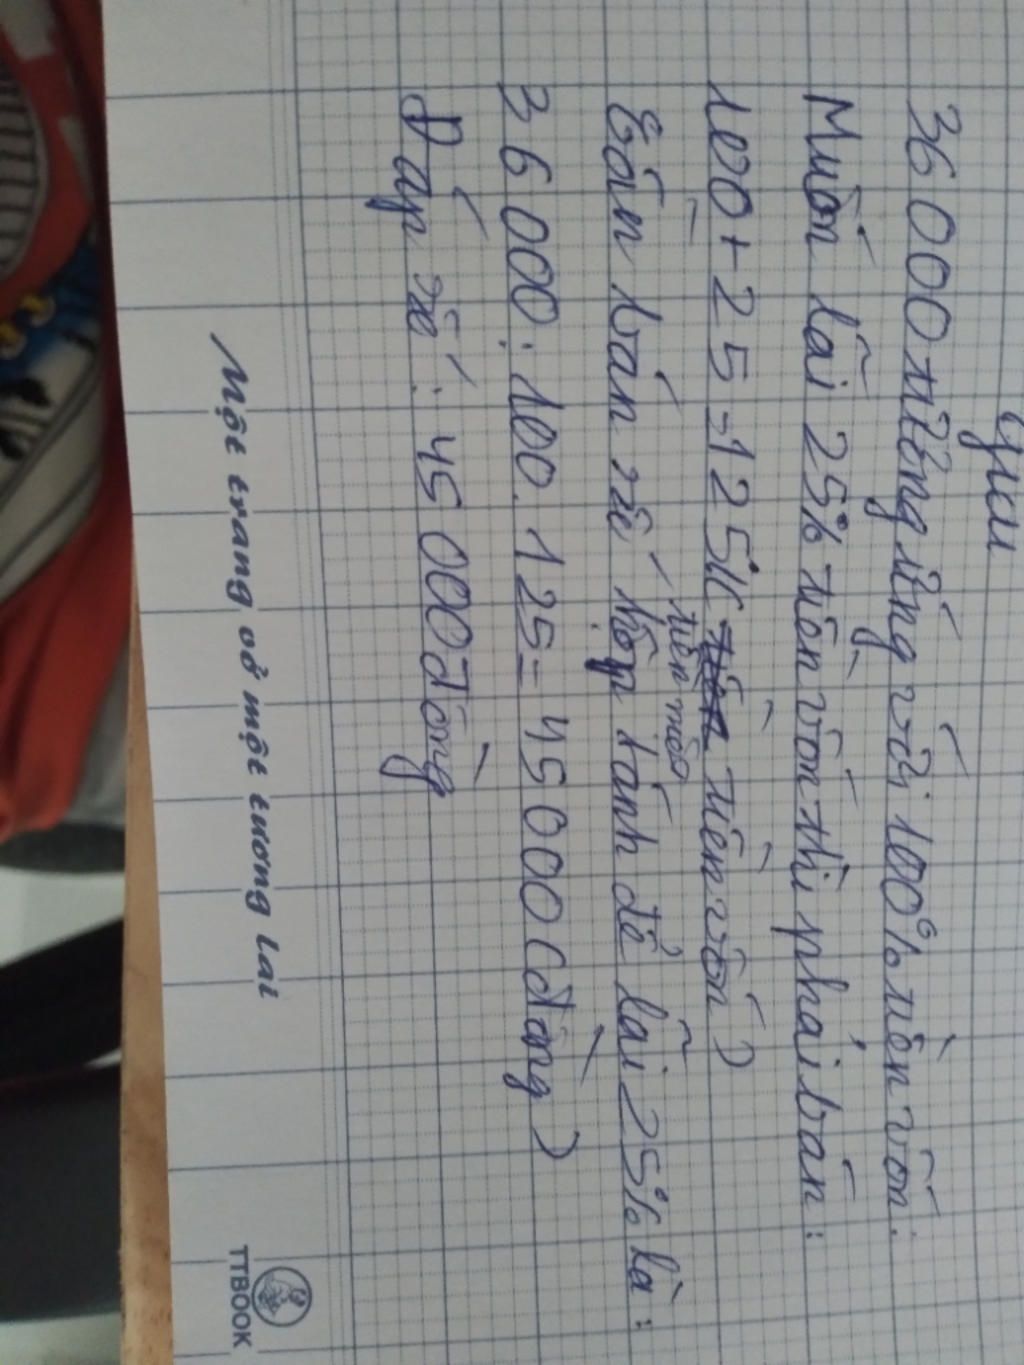 giải
36 000 tương ứng với 100% tiền vốn:
Muốn lãi 25% tiền vốn thì phải bán:
100 + 25 = 125% tiền vốn)
tiền một
Cần bán số hộp bánh để lãi 25% là:
36 000 : 100 . 125 = 45 000 (đồng)
Đáp số : 45 000 đồng
Một trang vở một tương lai
TTBOOK